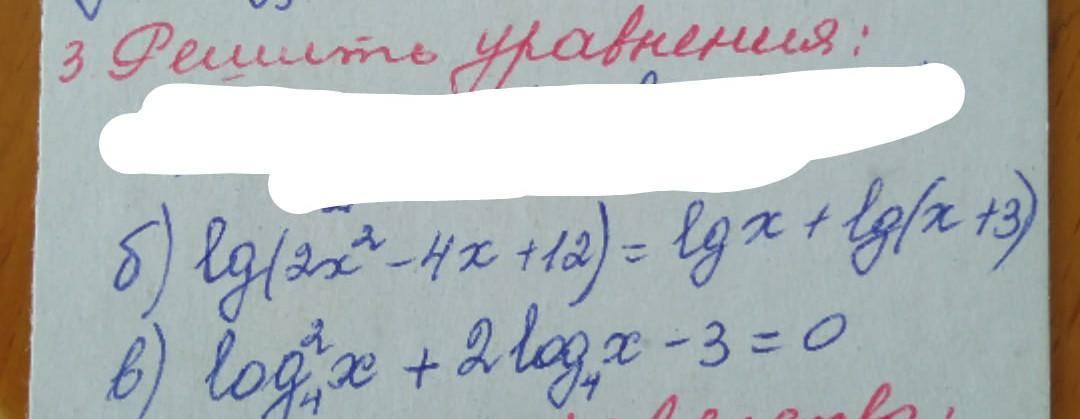 3 Решить уравнения:
б) lg(2x² - 4x + 12) = lg x + lg(x + 3)
в) log₄² x + 2 log₄ x - 3 = 0